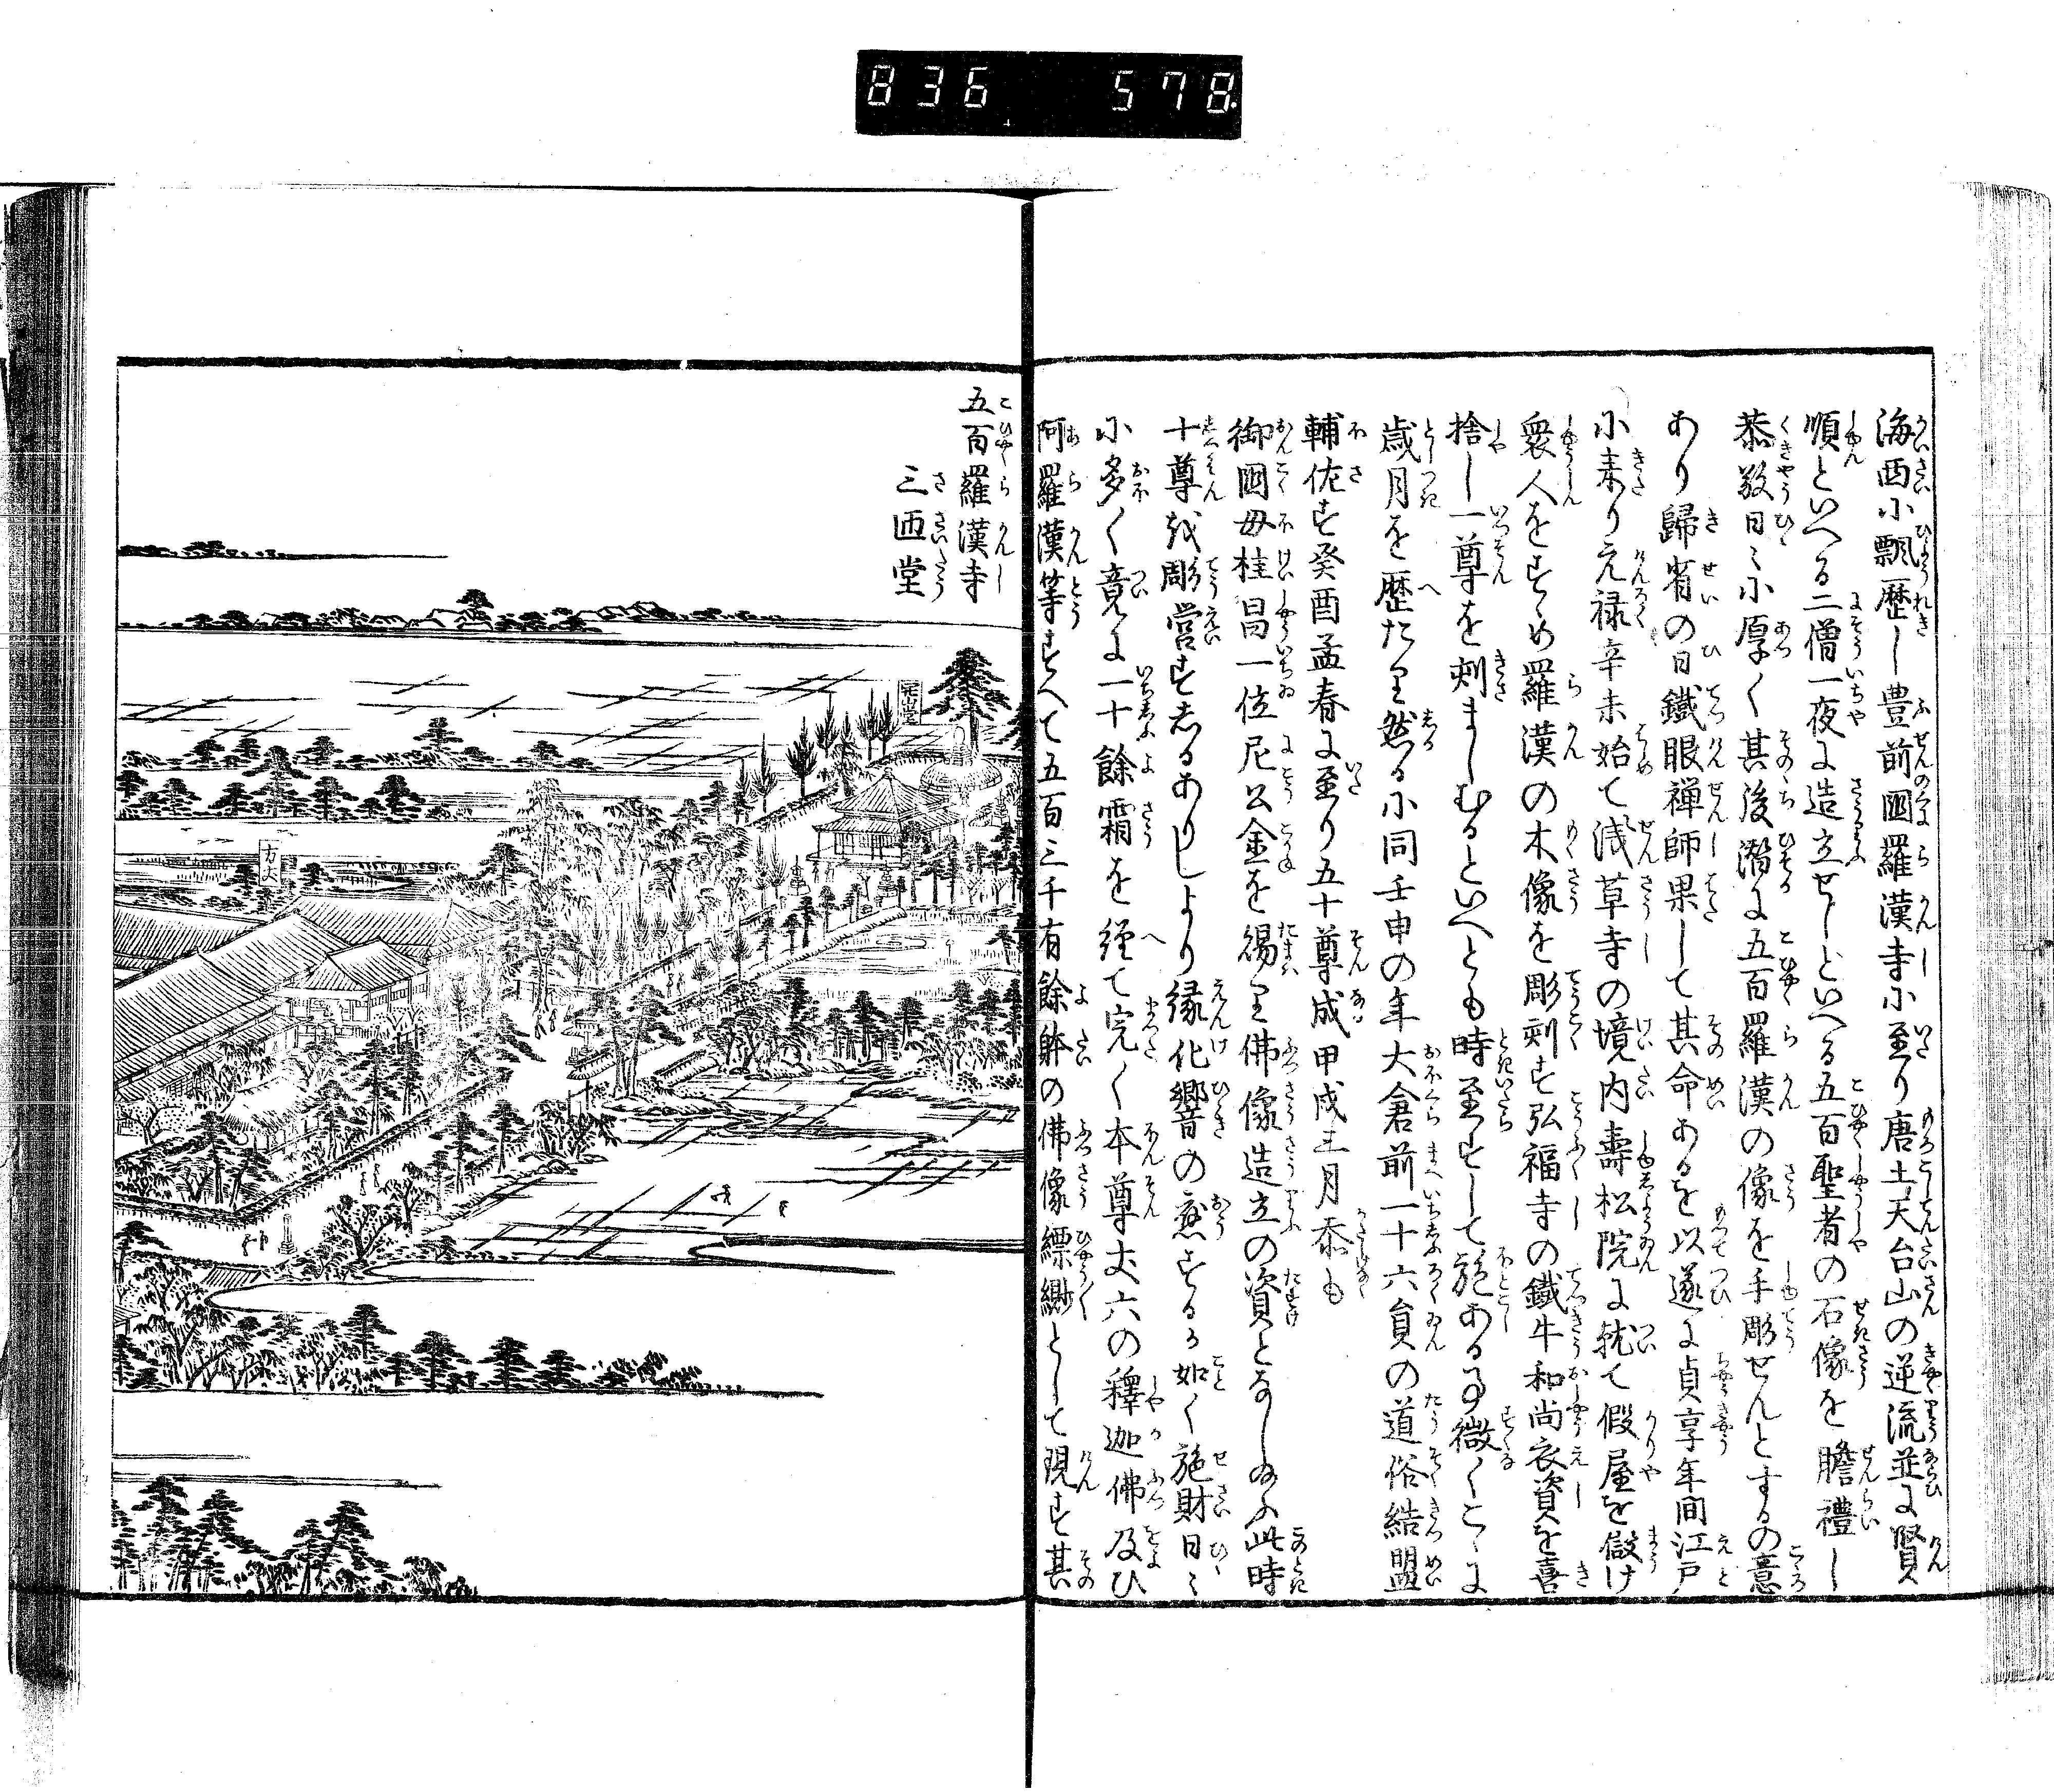 836 578.
海西に飄歴し豊前國羅漢寺に至り唐土天台山の逆流並に賢
順といへる二僧一夜に造立せしといへる五百聖者の石像を瞻禮し
恭敬日〻に厚く其後潜に五百羅漢の像を手彫せんとするの意
あり歸省の日鐵眼禅師果して其命あるを以遂に貞享年間江戸
に来り元禄辛未始て浅草寺の境内壽松院に就て假屋を儼け
衆人をすゝめ羅漢の木像を彫刻す弘福寺の鐵牛和尚衣資を喜
捨し一尊を刻ましむるといへとも時至すして施ある事微くこゝに
歳月を歴たり然るに同壬申の年大倉前一十六員の道俗結盟
輔佐す癸酉孟春に至り五十尊成甲戌五月忝も
御國母桂昌一位尼公金を賜り佛像造立の資となし給ふ此時
十尊を彫営すしるありしより縁化響の應するか如く施財日〻
に多く竟に一十餘霜を経て完く本尊丈六の釋迦佛及ひ
阿羅漢等すへて五百三千有餘躰の佛像縹緲として現す其
五百羅漢寺
三匝堂
開山堂
方丈